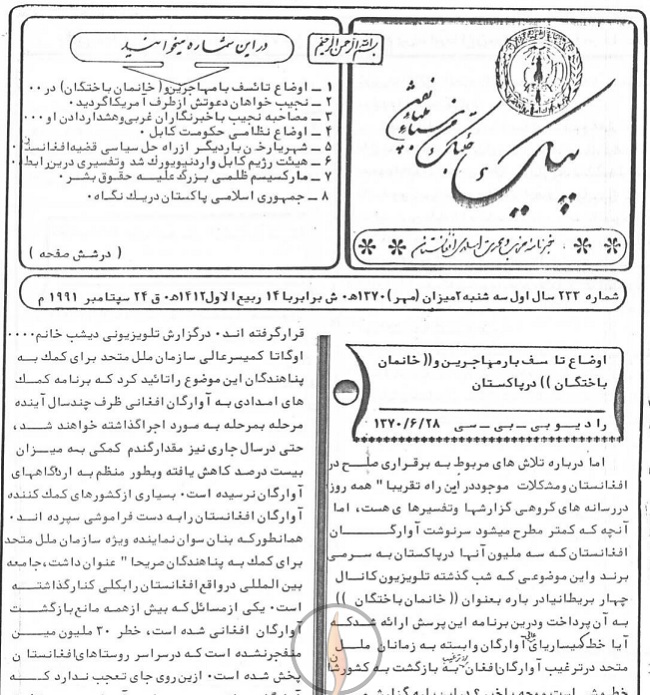 بسم الله الرحمن الرحیم
پیک
خبرنامهٔ
در این شماره میخوانید
۱ ــ اوضاع تاسف بار مهاجرین ( خانمان باختگان ) در ۰۰
۲ ــ نجیب خواهان دعوتش ازطرف آمریکا گردید ۰
۳ ــ مصاحبه نجیب باخبرنگاران غربی وهشداردادن او ۰۰۰
۴ ــ اوضاع نظامی حکومت کابل ۰
۵ ــ شهریارخان باردیگر ازراه حل سیاسی قضیه افغانستان
۶ ــ هیئت رژیم کابل واردنیویورک شد وتفسیری درین رابطه
۷ ــ مارکسیسم ظلمی بزرگ علیه حقوق بشر ۰
۸ ــ جمهوری اسلامی پاکستان دریک نگاه ۰
( درشش صفحه )
شماره ۲۳۳ سال اول سه شنبه ۲میزان (مهر) ۱۳۷۰ه‍ ۰ ش برابربا ۱۴ ربیع الاول ۱۴۱۲ه‍ ۰ ق ۲۴ سپتامبر ۱۹۹۱ م
اوضاع تا سف بارمهاجرین و(( خانمان
باختگان )) درپاکستان
رادیو بی ــ بی ــ سی ۱۳۷۰/۶/۲۸
اما درباره تلاش های مربوط به برقراری صلح در
افغانستان ومشکلات موجوددراین راه تقریبا " همه روزه
دررسانه های گروهی گزارشها وتفسیرها ی هست ، اما
آنچه که کمتر مطرح میشود سرنوشت آوارگان
افغانستان که سه ملیون آنها درپاکستان به سرمی
برند واین موضوعی که شب گذشته تلویزیون کانال
چهار بریطانیادر باره بعنوان (( خانمان باختگان ))
به آن پرداخت ودرین برنامه این پرسش ارائه شدکه
آیا خط کمیساریای عالی آوارگان وابسته به زمانان ملل
متحد درترغیب آوارگان افغان به بازگشت به کشورشان
قرارگرفته اند ۰ درگزارش تلویزیونی دیشب خانم ۰۰۰۰
اوگاتا کمیسرعالی سازمان ملل متحد برای کمک به
پناهندگان این موضوع راتائید کرد که برنامه کمک
های امدادی به آوارگان افغانی ظرف چندسال آینده
مرحله بمرحله به مورد اجراگذاشته خواهند شد ،
حتی درسال جاری نیز مقدارگندم کمکی به میزان
بیست درصد کاهش یافته وبطور منظم به اردگاههای
آوارگان نرسیده است ۰ بسیاری ازکشورهای کمک کننده
آوارگان افغانستان رابه دست فراموشی سپرده اند ۰
همانطورکه بنان سوان نماینده ویژه سازمان ملل متحد
برای کمک به پناهندگان صریحا " عنوان داشت ، جامعه
بین المللی درواقع افغانستان رابکلی کنارگذاشته
است ۰ یکی ازمسائل که بیش ازهمه مانع بازگشت
آوارگان افغانی شده است ، خطر ۳۰ ملیون مین
منفجرنشده است که درسراسر روستاهای افغانستان
پخش شده است ۰ ازین روی جای تعجب ندارد که